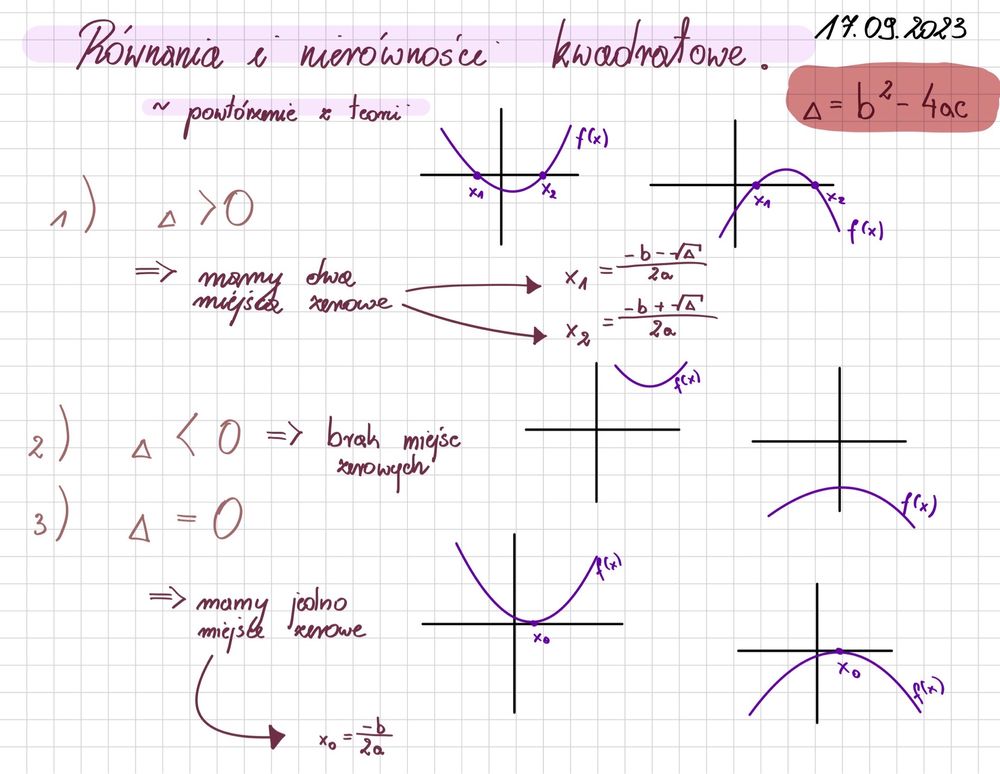 Równania i nierówności kwadratowe.
17.09.2023
~ powtórzenie z teorii
Δ = b² - 4ac
f(x)
x₁
x₂
x₁
x₂
f(x)
1) Δ > 0
=> mamy dwa
miejsca zerowe
x₁ = \frac{-b-√Δ}{2a}
x₂ = \frac{-b+√Δ}{2a}
f(x)
2) Δ < 0 => brak miejsc
zerowych
f(x)
3) Δ = 0
f(x)
x₀
=> mamy jedno
miejsce zerowe
x₀
f(x)
x₀ = \frac{-b}{2a}